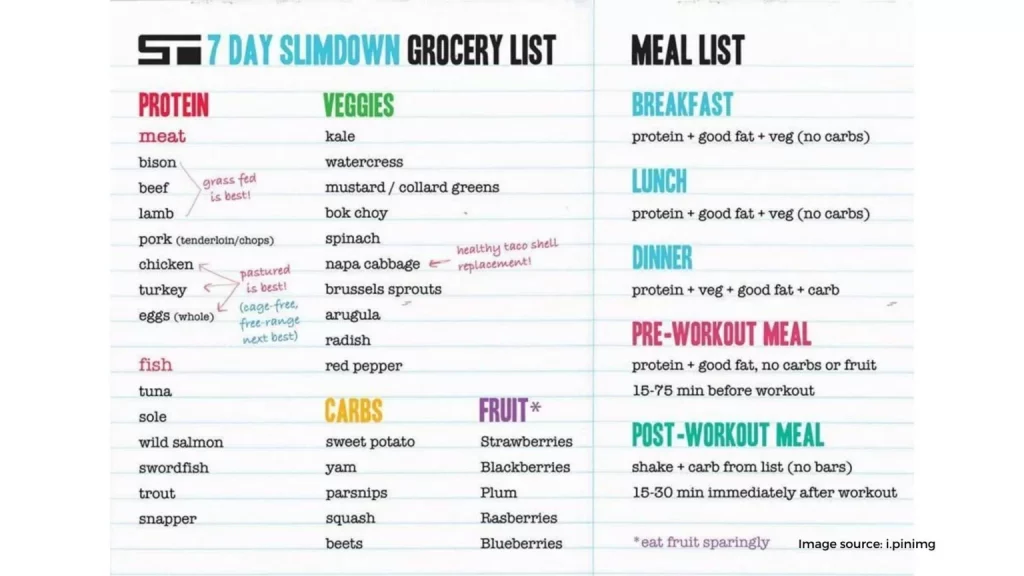 ST 7 DAY SLIMDOWN GROCERY LIST
PROTEIN
meat
bison
beef
lamb
grass fed
is best!
pork (tenderloin/chops)
chicken
turkey
eggs (whole)
pastured
is best!
(cage-free,
free-range
next best)
fish
tuna
sole
wild salmon
swordfish
trout
snapper
VEGGIES
kale
watercress
mustard / collard greens
bok choy
spinach
napa cabbage
healthy taco shell
replacement!
brussels sprouts
arugula
radish
red pepper
CARBS
sweet potato
yam
parsnips
squash
beets
FRUIT*
Strawberries
Blackberries
Plum
Rasberries
Blueberries
MEAL LIST
BREAKFAST
protein + good fat + veg (no carbs)
LUNCH
protein + good fat + veg (no carbs)
DINNER
protein + veg + good fat + carb
PRE-WORKOUT MEAL
protein + good fat, no carbs or fruit
15-75 min before workout
POST-WORKOUT MEAL
shake + carb from list (no bars)
15-30 min immediately after workout
*eat fruit sparingly
Image source: i.pinimg